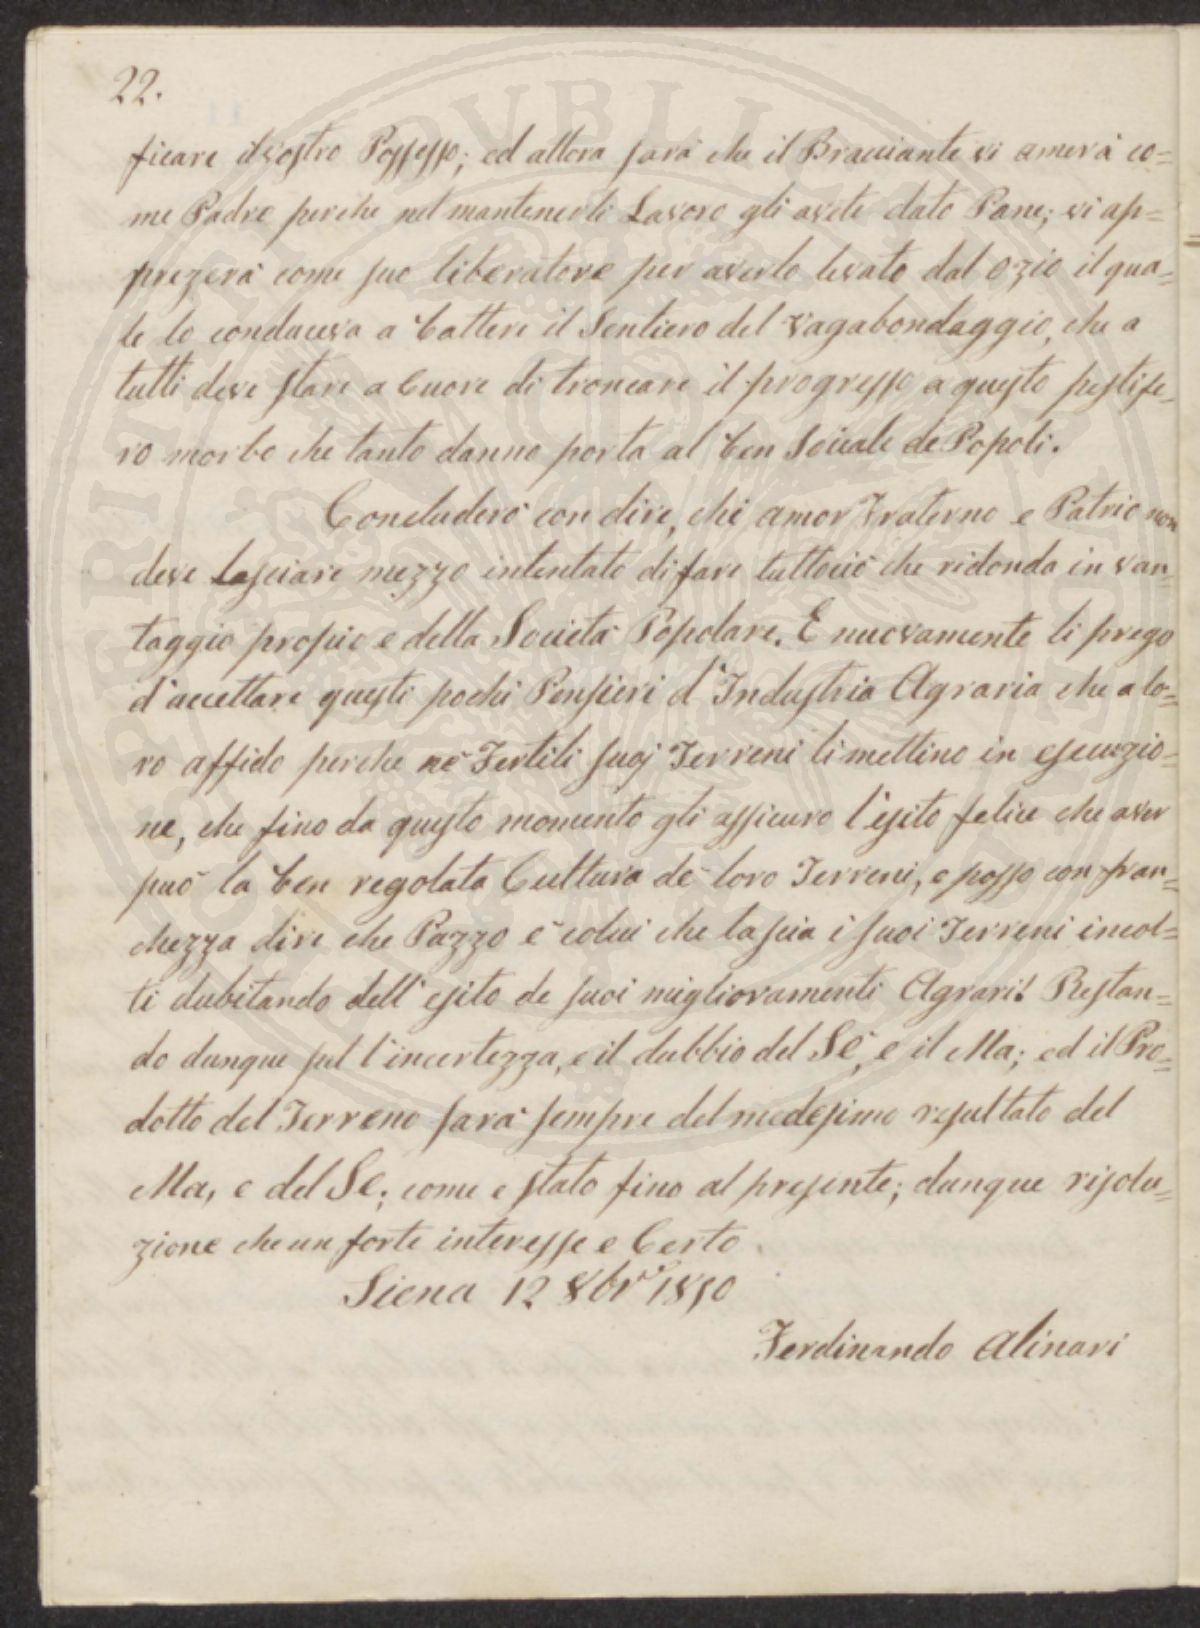 22.
ficare il vostro Possesso; ed allora sarà che il Bracciante vi amerà co=
me Padre perche nel mantenerli Lavoro gli avete dato Pane; vi ap=
prezerà come suo liberatore per averlo levato dal Ozio il qua=
le lo conduceva a battere il Sentiero del vagabondaggio, che a
tutti deve stare a Cuore di troncare il progresso a questo pestife=
ro morbo che tanto danno porta al ben Sociale de Popoli.
Concluderò con dire, che amor Fraterno e Patrio non
deve Lasciare mezzo intentato di fare tuttociò che ridonda in van=
taggio propio e della Società Popolare. E nuovamente li prego
d'accettare questi pochi Pensieri d'Industria Agraria che a lo=
ro affido perche nè Fertili suoj Terreni li mettino in esecuzio=
ne, che fino da questo momento gli assicuro l'esito felice che aver
può la ben regolata Cultura de loro Terreni, e posso con fran=
chezza dire che Pazzo è colui che lascia i suoi Terreni incol=
ti dubitando dell'esito de suoi miglioramenti Agrari! Restan=
do dunque sul l'incertezza, e il dubbio del Sè, e il Ma; ed il Pro=
dotto del Terreno sarà sempre del medesimo resultato del
Ma, e del Se; come e stato fino al presente; dunque risolu=
zione che un forte interesse e Certo.
Siena 12 8bre 1850
Ferdinando Alinari